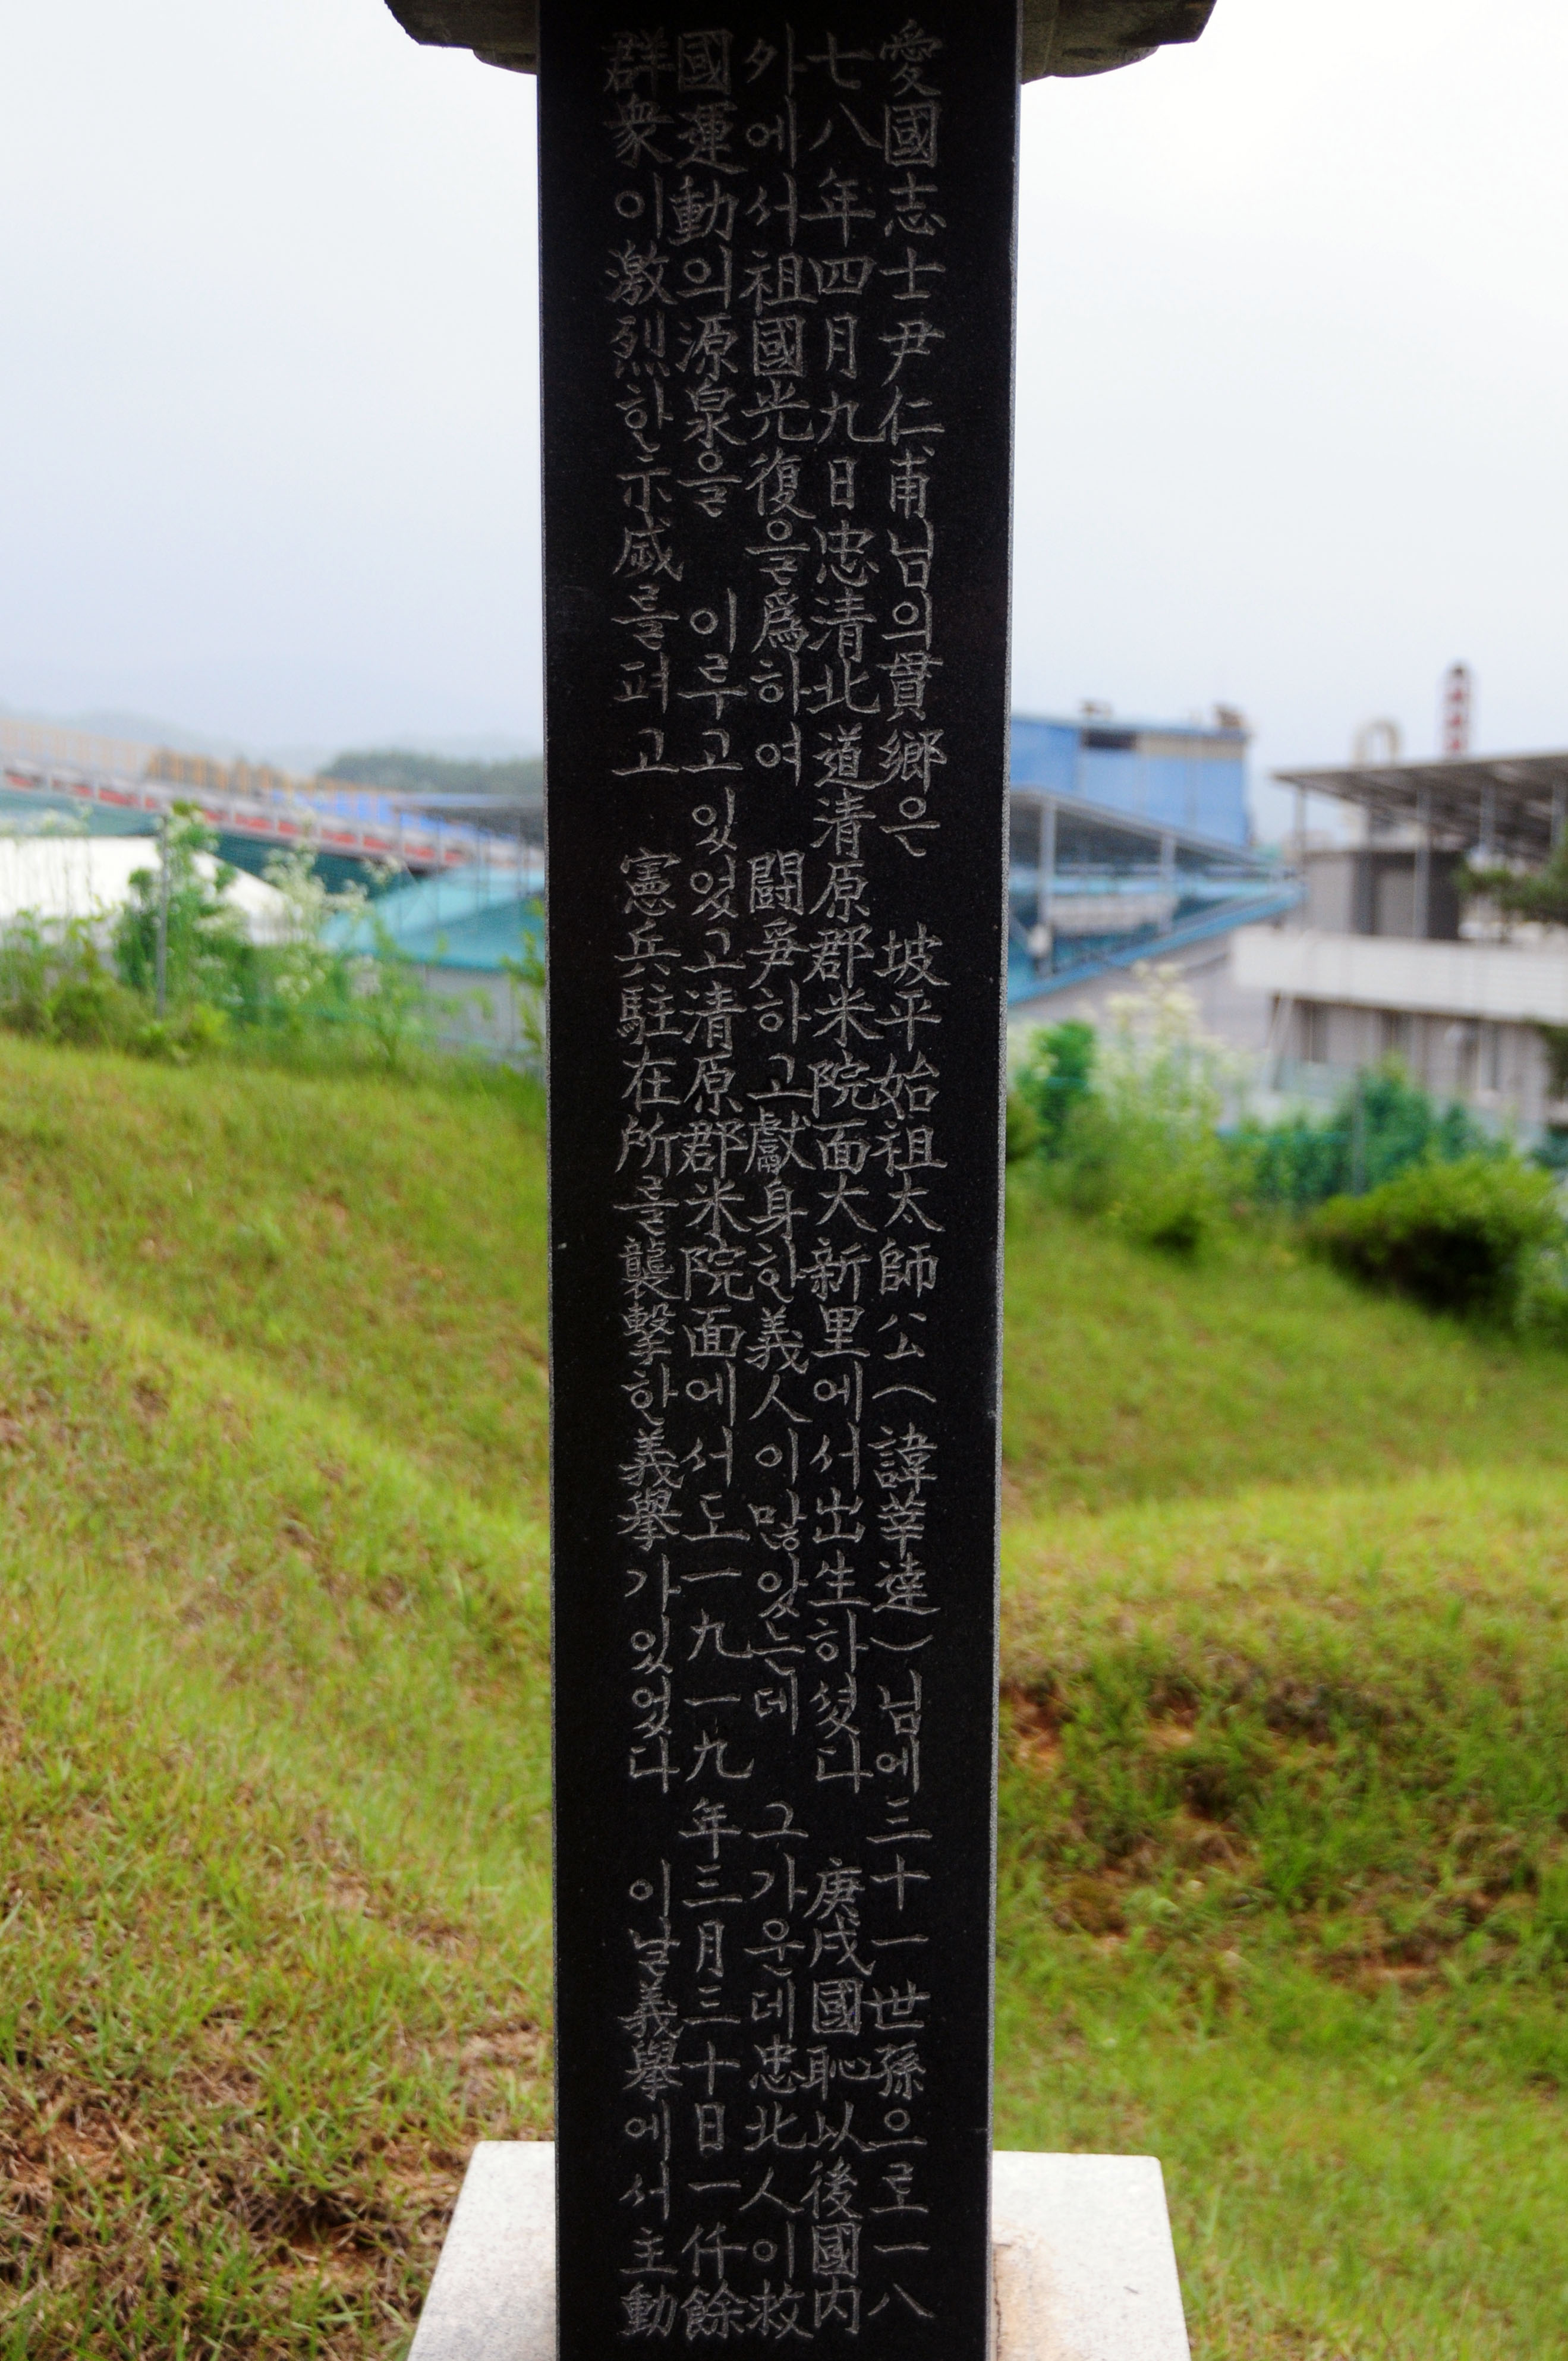 愛國志士尹仁甫님의貫鄕은 坡平始祖太師公(諱莘達)님에三十一世孫으로一八
七八年四月九日忠淸北道淸原郡米院面大新里에서出生하셨다 庚戌國恥以後國內
外에서祖國光復을爲하여 鬪爭하고獻身한義人이많았는데 그가운데忠北人이救
國運動의源泉을 이루고있었고淸原郡米院面에서도一九一九年三月三十日一仟餘
群衆이激烈한示威를펴고 憲兵駐在所를襲擊한義擧가있었다 이날義擧에서主動